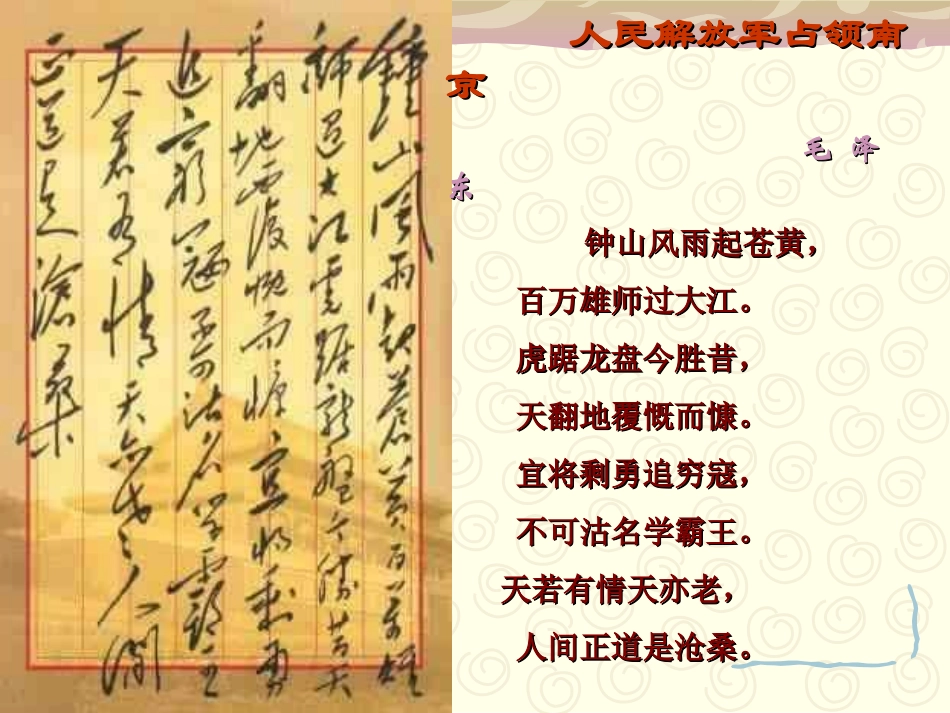 鍾山風雨起蒼黄百万雄
師過大江虎踞龍盤今勝昔天
翻地覆慨而慷宜将剩勇
追窮寇不可沽名学霸王
天若有情天亦老人間
正道是滄桑
人民解放军占领南
京
毛 泽
东
钟山风雨起苍黄，
百万雄师过大江。
虎踞龙盘今胜昔，
天翻地覆慨而慷。
宜将剩勇追穷寇，
不可沽名学霸王。
天若有情天亦老，
人间正道是沧桑。